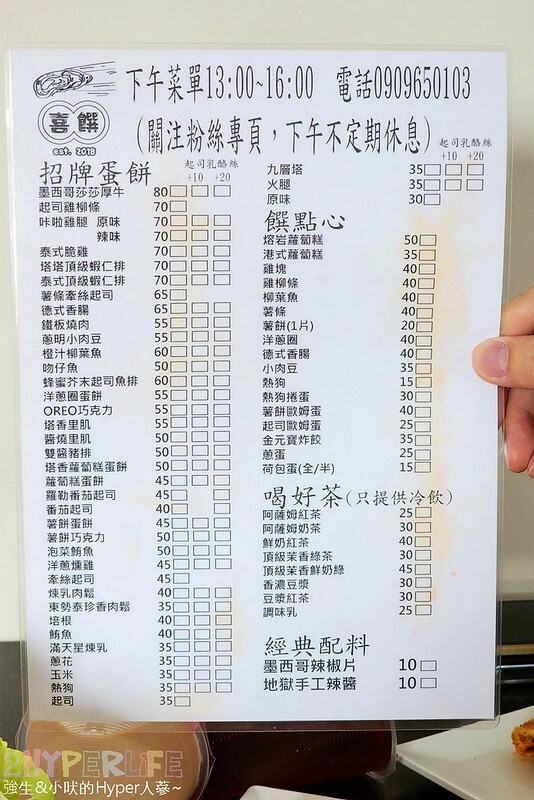 下午菜單13:00~16:00 電話0909650103
喜饌
est. 2018
(關注粉絲專頁，下午不定期休息)
招牌蛋餅
起司乳酪絲
+10 +20
墨西哥莎莎厚牛 80
起司雞柳條 70
咔啦雞腿 原味 70
辣味 70
泰式脆雞 70
塔塔頂級蝦仁排 70
泰式頂級蝦仁排 70
薯條牽絲起司 65
德式香腸 60
鐵板燒肉 55
蔥明小肉豆 55
橙汁柳葉魚 60
吻仔魚 50
蜂蜜芥末起司魚排 60
洋蔥圈蛋餅 55
OREO巧克力 55
塔香里肌 55
醬燒里肌 50
雙醬豬排 50
塔香蘿蔔糕蛋餅 50
蘿蔔糕蛋餅 45
羅勒番茄起司 45
番茄起司 40
薯餅蛋餅 45
薯餅巧克力 50
泡菜鮪魚 50
洋蔥燻雞 45
牽絲起司 45
煉乳肉鬆 40
東勢泰珍香肉鬆 35
培根 40
鮪魚 40
滿天星煉乳 35
蔥花 35
玉米 35
熱狗 35
起司 35
起司乳酪絲
+10 +20
九層塔 35
火腿 35
原味 30
饌點心
熔岩蘿蔔糕 50
港式蘿蔔糕 35
雞塊 40
雞柳條 40
柳葉魚 40
薯條 40
薯餅(1片) 20
洋蔥圈 40
德式香腸 40
小肉豆 35
熱狗 15
熱狗捲蛋 30
薯餅歐姆蛋 40
起司歐姆蛋 25
金元寶炸餃 35
蔥蛋 25
荷包蛋(全/半) 15
喝好茶(只提供冷飲)
阿薩姆紅茶 25
阿薩姆奶茶 30
鮮奶紅茶 40
頂級茉香綠茶 30
頂級茉香鮮奶綠 45
香濃豆漿 30
豆漿紅茶 30
調味乳 25
經典配料
墨西哥辣椒片 10
地獄手工辣醬 10
2HYPERLIFE
強生&小吠的Hyper人蔘~